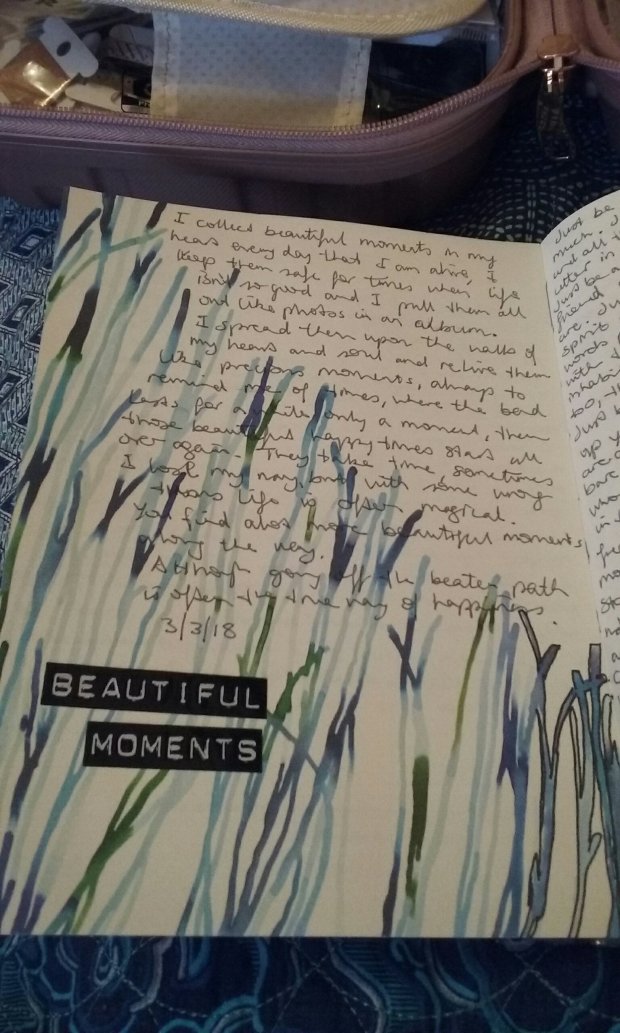 I collect beautiful moments in my
heart every day that I am alive, I
keep them safe for times when life
isn't so good and I pull them all
out like photos in an album.
I spread them upon the walls of
my heart and soul and relive them
like, precious moments, always to
remind me of times, where the bad
lasts for a while only a moment, then
those beautiful happy times start all
over again. They take time, sometimes
I lose my way, but with some wrong
turns life is often magical.
You find alot more beautiful moments
along the way.
Although going off the beaten path
is often the true way of happiness.
3/3/18
BEAUTIFUL
MOMENTS
Just be
much.
and all
utter in
Just be a
friend
are
spirit
words
with
too, th
Just b
up y
are
bare
who